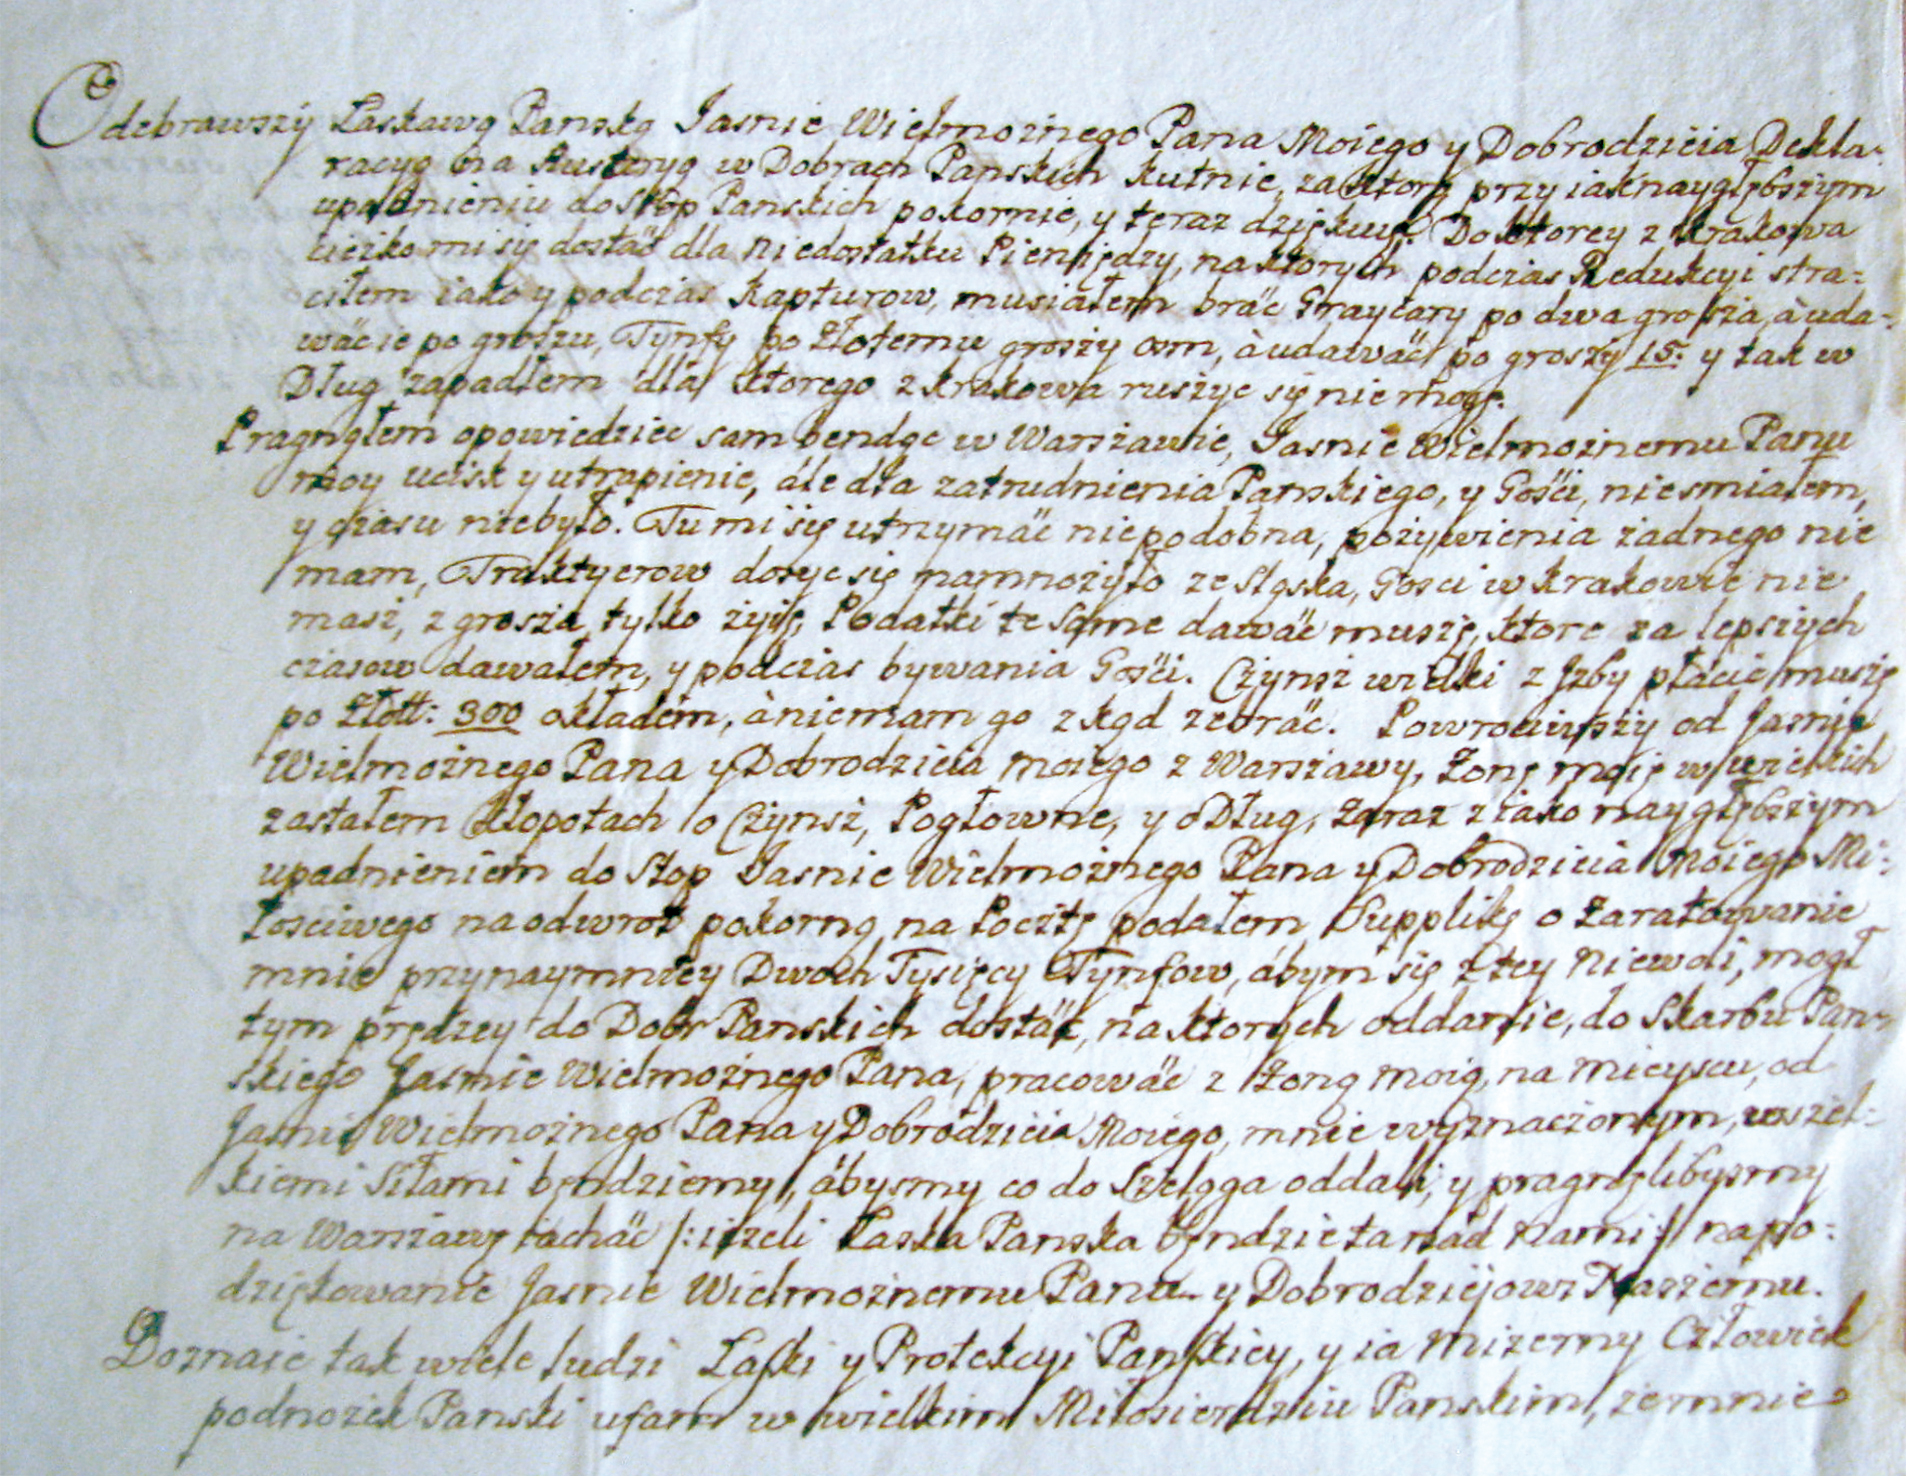 Odebrawszy Łaskawą Panską Jasnie Wielmożnego Pana Moiego y Dobrodzieia Dekla-
racyą na Austeryą w Dobrach Panskich Kutnie, za ktorą przy iaknaygłębszym
upadnieniu do Stop Panskich pokornie, y teraz dziękuię. Do ktorey z Krakowa
cięzko mi się dostać dla niedostatku Pieniędzy, na ktorych podczas Redukcyi stra-
ciłem iako y podczas Kapturow, musiałem brać Graycary po dwa grosza, à uda-
wać ie po groszu, Tynfy po Złotemu groszy osm, à udawać po groszy 15. y tak w
Dług zapadłem dla ktorego z Krakowa ruszyc się nie mogę.
Pragnąłem opowiedziec sam bendąc w Warszawie, Jasnie Wielmożnemu Panu
moy ucisk y utrapienie, ále dla zatrudnienia Panskiego, y Gosći, niesmiałem,
y czasu niebyło. Tu mi się utrzymać niepodobna, pożywienia żadnego nie
mam, Traktyerow dosyc się namnożyło ze Sląska, Gosci w Krakowie nie
masz, z grosza tylko żyię, Podatki te same dawać muszę, ktore za lepszych
czasow dawałem, y podczas bywania Gosći. Czynsz wielki z Jzby płácic muszę
po Złott: 300 okładem, à niemam go zkąd zebrać. Powrociwszy od Jasnie
Wielmożnego Pana y Dobrodzieia moiego z Warszawy, Zonę moię w wielkich
zastałem kłopotach o Czynsz, Pogłowne, y o Dług, zaraz z iako naygłębszym
upadnieniem do Stop Jasnie Wielmożnego Pana y Dobrodzieia Moiego Mi-
łosciwego na odwrot pokorną na Pocztę podałem Supplikę o zaratowanie
mnie przynaymniey Dwoch Tysięcy Tynfow, ábym się z tey Niewoli, mogł
tym prędzey do Dobr Panskich dostać, na ktorych oddanie, do Skarbu Pan-
skiego Jasnie Wielmożnego Pana, pracować z Zoną moią, na mieyscu, od
Jasnie Wielmożnego Pana y Dobrodzieia Moiego, mnie wyznaczonym, wszel-
kiemi Siłami bęndziemy, ábysmy co do Szeląga oddali, y pragnęlibysmy
na Warszawę iachać /: ieżeli Łaska Panska bęndzie ta nád Nami :/ na po-
dziękowanie Jasnie Wielmożnemu Panu y Dobrodziejowi Naszemu.
Doznaie tak wiele ludzi Łaski y Protekcyi Panskiey, y ia Mizerny Człowiek
podnożek Panski ufam w wielkim Miłosierdziu Panskim, że mnie